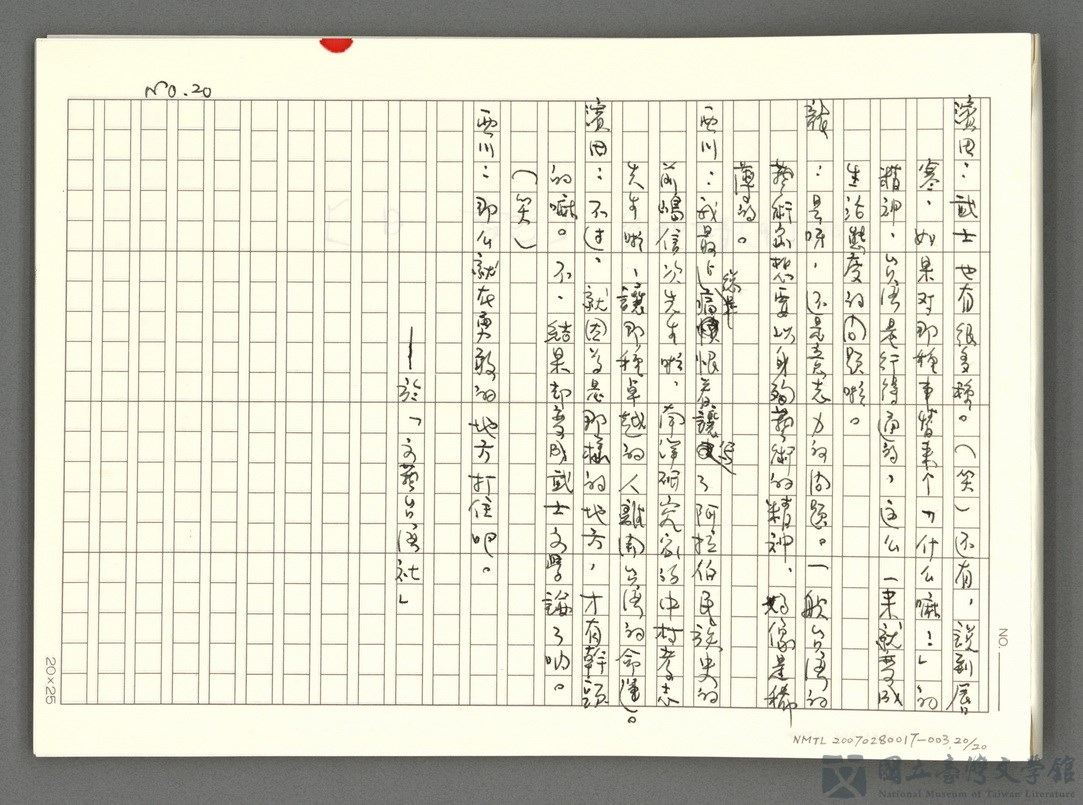 NO.20
濱田：武士也有很多種。（笑）还有，說到居
寒、如果对那種事替来个「什么嘛！」的
精神，台湾是行得通的，这么一来就变成
生活態度的问題啦。
龍：是呀，还是意志力的问題。一般台湾的
藝術家想要以身殉藝術的精神，好像是稀
薄的。
西川：我最近總是恨着讓寫了阿拉伯民族史的
前嶋信次先生啦、南洋研究家的中村孝志
先生啦、讓那種卓越的人離開台湾的命運。
濱田：不过，就因为是那樣的地方，才有幹頭
的嘛。不，結果却变成武士文學論了吶。
（笑）
西川：那么就在勇敢的地方打住吧。
——於「文藝台湾社」
NO.
20×25
NMTL 20070280017-003.20/20
國立臺灣文學館
National Museum of Taiwan Literature